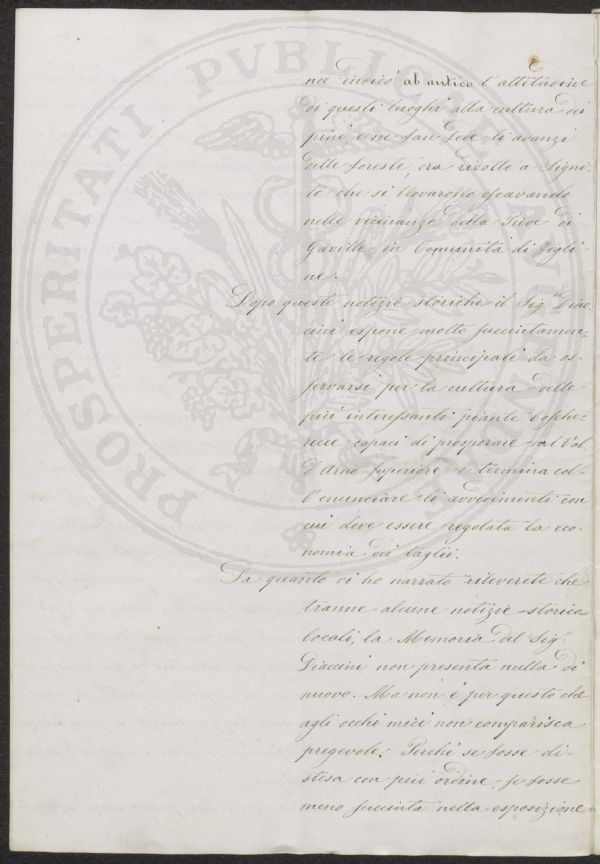 ab antico l'attitudine
di questi luoghi alla cultura dei
pini, e ne fan fede li avanzi
delle foreste, ora ridotte a ligni-
te che si trovarono escavando
nelle vicinanze della Pieve di
Gaville in Comunità di Figli-
ne.
Dopo queste notizie storiche il Sig.r Diac-
cini espone molto succintamen-
te le regole principali da os-
servarsi per la cultura delle
più interessanti piante bosche-
recce capaci di prosperare nel Val
d'Arno Superiore e termina col-
l'enunciare li avvedimenti con
cui deve essere regolata la eco-
nomia dei taglii.
Da quanto vi ho narrato rileverete che
tranne alcune notizie storica
locali, la Memoria del Sig.r
Diaccini non presenta nulla di
nuovo. Ma non è per questo che
agli occhi miei non comparisca
pregevole. Perchè se fosse di-
stesa con più ordine, se fosse
meno succinta nella esposizione
PROSPERITATI PVBLICAE